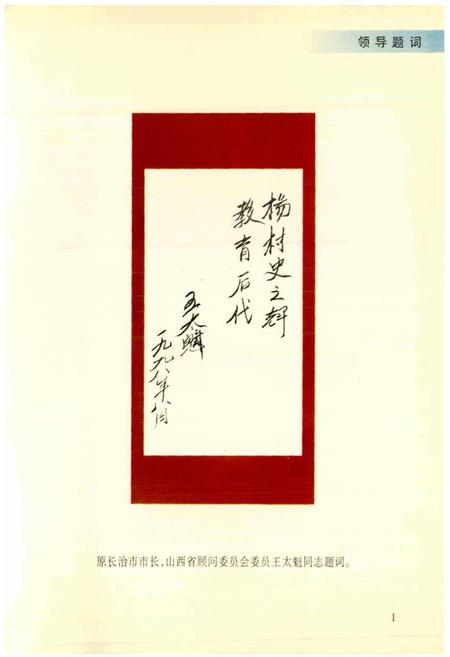 领导题词
杨村史之辉
教育后代
王太魁
一九九八年八月
原长治市市长,山西省顾问委员会委员王太魁同志题词。
1